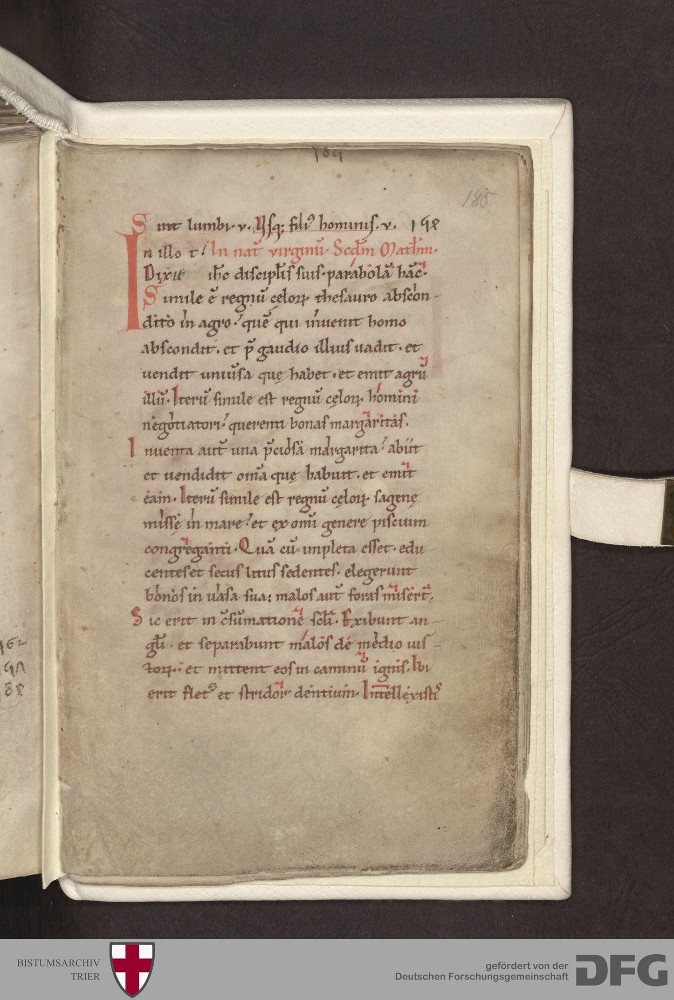 169
185
Sint lumbi· v· Usq; fili⁹ hominis· v· 198
In illo t̄· In nat̄ virginū· Scd̄m Math̄m·
Dixit ih̄c disciplis suis· parabolā hāc·
Simile ē regnū cęloꝝ thesauro abscon-
dito in agro· quē qui invenit homo
abscondit· et p̄ gaudio illius vadit· et
vendit univsa quę habet· et emit agrū
illū· Iterū simile est regnū cęloꝝ homini
negotiatori· querenti bonas margaritas·
Inventa aut̄ una p̄ciosa margarita· abiit
et vendidit om̄a quę habuit· et emit
eam· Iterū simile est regnū cęloꝝ sagenę
missę in mare· et ex omī genere piscium
congreganti· Quā cū impleta esset· edu-
centes et secus litus sedentes· elegerunt
bonos in vasa sua; malos aut̄ foras miser̄t·
Sic erit in c̄sūmatione scl̄i· Exibunt an-
gl̄i· et separabunt malos de medio ius-
toꝝ· et mittent eos in caminū ignis· Ibi
erit flet⁹ et stridor dentium· Intellexisti⁹
162
BISTUMSARCHIV
TRIER
gefördert von der
Deutschen Forschungsgemeinschaft
DFG